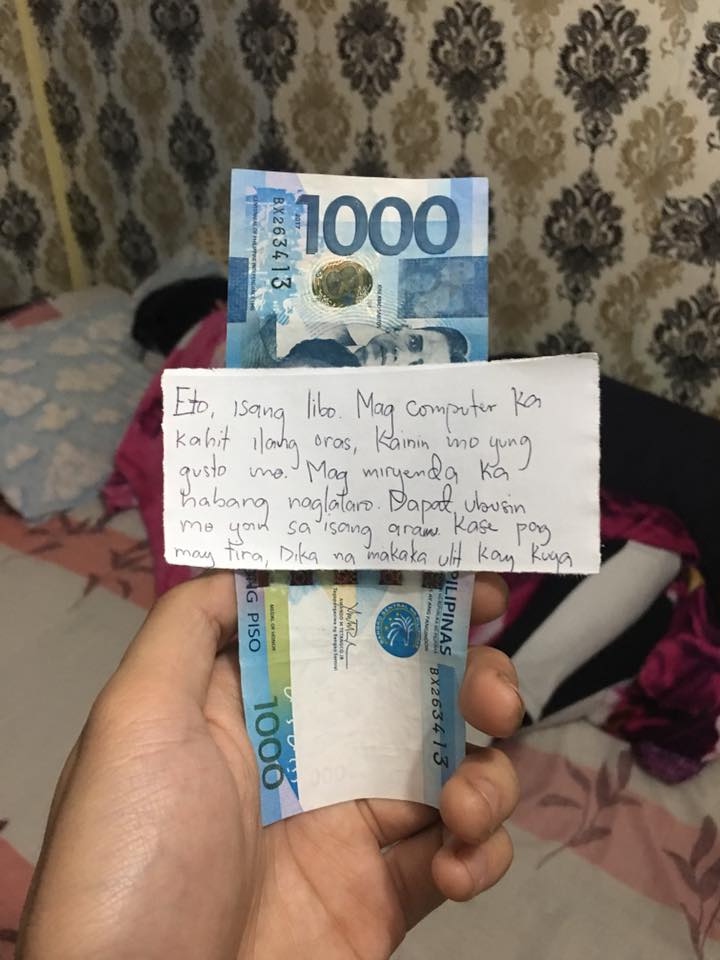 1000
2017
BX263413
Eto, isang libo. Mag computer ka
kahit ilang oras, Kainin mo yung
gusto mo. Mag miryenda ka
habang naglalaro. Dapat ubusin
mo yan sa isang araw. Kase pag
may tira, Dika na makaka ulit kay kuya
NG PISO
MEDAL OF HONOR
PILIPINAS
BX263413
1000